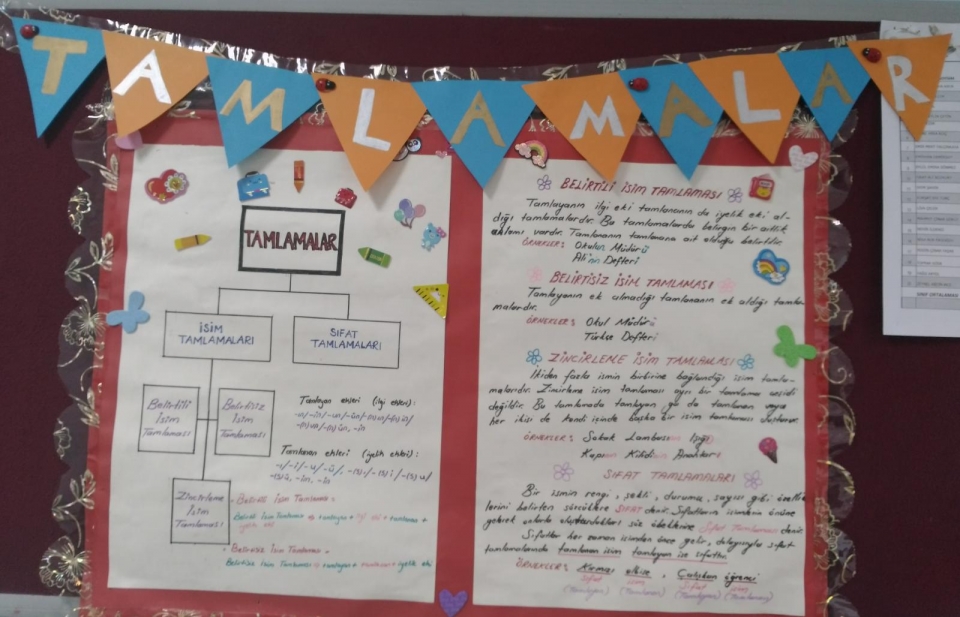 TAMLAMALAR
TAMLAMALAR
İSİM
TAMLAMALARI
SIFAT
TAMLAMALARI
Belirtili
İsim
Tamlaması
Belirtisiz
İsim
Tamlaması
Zincirleme
İsim
Tamlaması
Tamlayan ekleri (ilgi ekleri):
Tamlanan ekleri (iyelik ekleri):
Belirtili İsim Tamlaması
Belirtili İsim Tamlaması tamlayan + ilgi eki + tamlanan +
iyelik eki
Belirtisiz İsim Tamlaması
Belirtisiz İsim Tamlaması tamlayan + tamlanan + iyelik eki
BELİRTİLİ İSİM TAMLAMASI
Tamlayanın ilgi eki tamlananın da iyelik eki al-
dığı tamlamalardır. Bu tamlamalarda belirgin bir aitlik
vardır. Tamlananın tamlayana ait olduğu belirtilir.
ÖRNEKLER: Okulun Müdürü
Ali'nin Defteri
BELİRTİSİZ İSİM TAMLAMASI
Tamlayanın ek almadığı tamlananın ek aldığı tamla-
malardır.
ÖRNEKLER: Okul Müdürü
Türkçe Defteri
ZİNCİRLEME İSİM TAMLAMASI
İkiden fazla ismin birbirine bağlandığı isim tamla-
malarıdır. Zincirleme isim tamlaması ayrı bir tamlama çeşidi
değildir. Bu tamlamada tamlayan ya da tamlanan veya
her ikisi de kendi içinde başka bir isim tamlaması oluşturur.
ÖRNEKLER: Sokak Lambasının Işığı
Kapının Kilidinin Anahtarı
SIFAT TAMLAMALARI
Bir ismin rengi, şekli, durumu, sayısı gibi özellik-
lerini belirten sözcüklere SIFAT denir. Sıfatların isimlerin önüne
gelerek onlarla oluşturdukları söz öbeklerine Sıfat Tamlaması denir.
Sıfatlar her zaman isimden önce gelir, dolayısıyla sıfat
tamlamalarında tamlanan isim tamlayan ise sıfattır.
ÖRNEKLER: Kırmızı elbise, Çalışkan öğrenci
sıfat isim Sıfat isim
(Tamlayan) (Tamlanan) (Tamlayan) (Tamlanan)